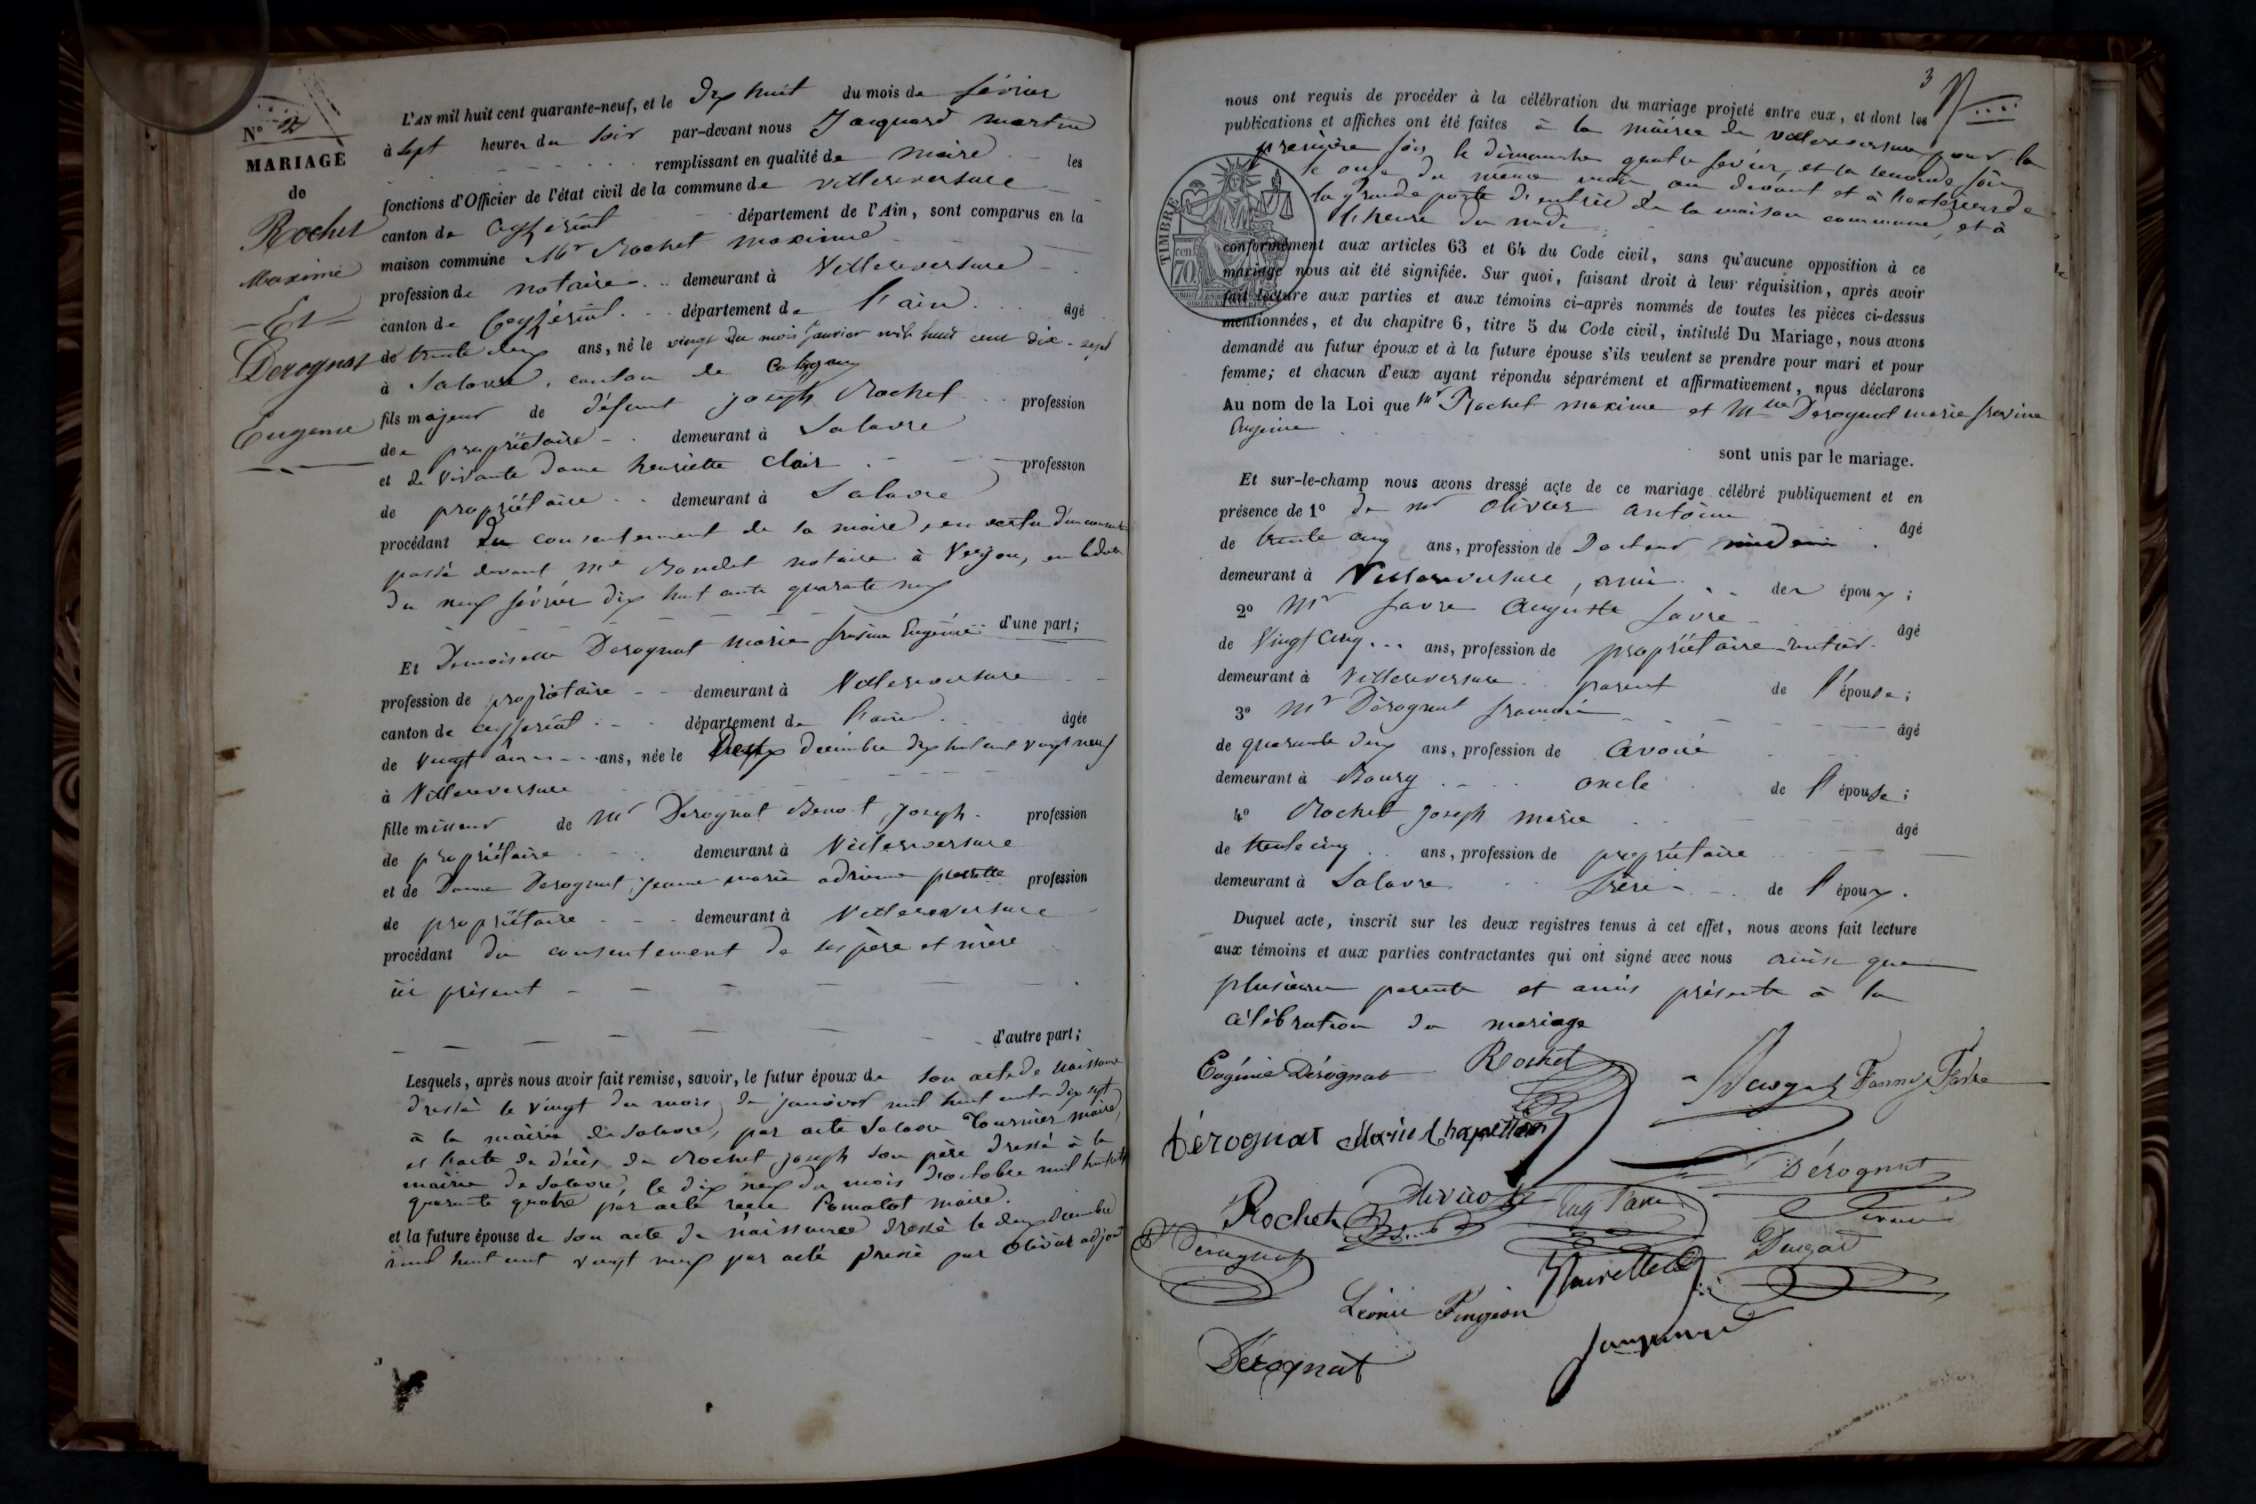 N° 2
MARIAGE
de
Rochet
Maxime
Et
Derognat
Eugenie
L'AN mil huit cent quarante-neuf, et le dix huit du mois de février
à sept heures du soir par-devant nous Jacquand martin
remplissant en qualité de maire les
fonctions d'Officier de l'état civil de la commune de villereversure
canton de Ceyzeriat département de l'Ain, sont comparus en la
maison commune Mr Rochet maxime
profession de notaire demeurant à Villereversure
canton de Ceyzériat département de l'ain âgé
de trente deux ans, né le vingt du mois janvier mil huit cent dix-sept
à Salavre, canton de Coligny
fils majeur de défunt joseph Rochet profession
de propriétaire demeurant à Salavre
et de vivante dame henriette Clair profession
de propriétaire demeurant à Salavre
procédant du consentement de sa mère, en vertu d'un
passé devant Me notaire à Verjon, en date
du neuf février dix huit cent quarante neuf
d'une part;
Et Demoiselle Derognat marie frasine Eugénie
profession de propriétaire demeurant à Villereversure
canton de ceyzeriat département de l'ain âgée
de vingt ans, née le deux décembre dix huit cent vingt neuf
à Villereversure
fille mineur de Mr Derognat Benoit, joseph profession
de propriétaire demeurant à Villereversure
et de Dame Derognat jeanne marie adrienne profession
de propriétaire demeurant à Villereversure
procédant du consentement de ses père et mère
ici présent
d'autre part;
Lesquels, après nous avoir fait remise, savoir, le futur époux de son acte de naissance
dressé le vingt du mois de janvier mil huit cent dix sept
à la mairie de Salavre, par acte Salavre Tournier maire,
et l'acte de décès de Rochet joseph son père dressé à la
mairie de Salavre, le dix neuf du mois d'octobre mil huit cent
quarante quatre par acte reçu Pomatot maire.
et la future épouse de son acte de naissance dressé le deux décembre
mil huit cent vingt neuf par acte dressé par Olivier adjoint
3
nous ont requis de procéder à la célébration du mariage projeté entre eux, et dont les
publications et affiches ont été faites à la mairie de villereversure pour la
première fois le dimanche quatre février, et la seconde fois
le onze du même mois, au devant et à l'extérieur de
la grande porte d'entrée de la maison commune, et à
l'heure de midi
TIMBRE
70
conformément aux articles 63 et 64 du Code civil, sans qu'aucune opposition à ce
mariage nous ait été signifiée. Sur quoi, faisant droit à leur réquisition, après avoir
fait lecture aux parties et aux témoins ci-après nommés de toutes les pièces ci-dessus
mentionnées, et du chapitre 6, titre 5 du Code civil, intitulé Du Mariage, nous avons
demandé au futur époux et à la future épouse s'ils veulent se prendre pour mari et pour
femme; et chacun d'eux ayant répondu séparément et affirmativement, nous déclarons
Au nom de la Loi que Mr Rochet maxime et Mlle Derognat marie frasine
Eugenie
sont unis par le mariage.
Et sur-le-champ nous avons dressé acte de ce mariage célébré publiquement et en
présence de 1° de mr Olivier Antoine âgé
de trente cinq ans, profession de Docteur médecin
demeurant à Villereversure, ami des époux;
2° Mr favre Auguste favre âgé
de Vingt Cinq ans, profession de propriétaire rentier
demeurant à Villereversure parent de l'épouse;
3° Mr Dérognat âgé
de quarante deux ans, profession de Avoué
demeurant à Bourg oncle de l'épouse;
4° Rochet joseph marie âgé
de trente cinq ans, profession de propriétaire
demeurant à Salavre frère de l'époux.
Duquel acte, inscrit sur les deux registres tenus à cet effet, nous avons fait lecture
aux témoins et aux parties contractantes qui ont signé avec nous ainsi que
plusieurs parents et amis présents à la
célébration du mariage
Eugénie Dérognat Rochet Fanny Favre
Dérognat Marie
Dérognat
Rochet Olivier
Dérognat
Léonie
Jacquand
Dérognat